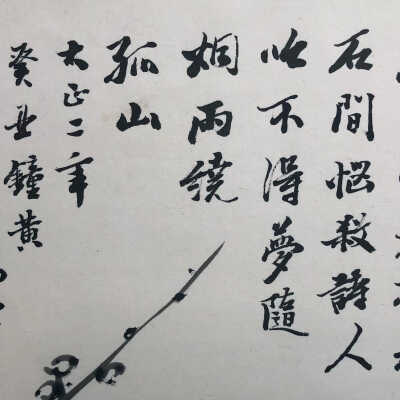 石間惱殺詩人
吟不得夢隨
烟雨繞
孤山
大正二年
癸丑鐘黄